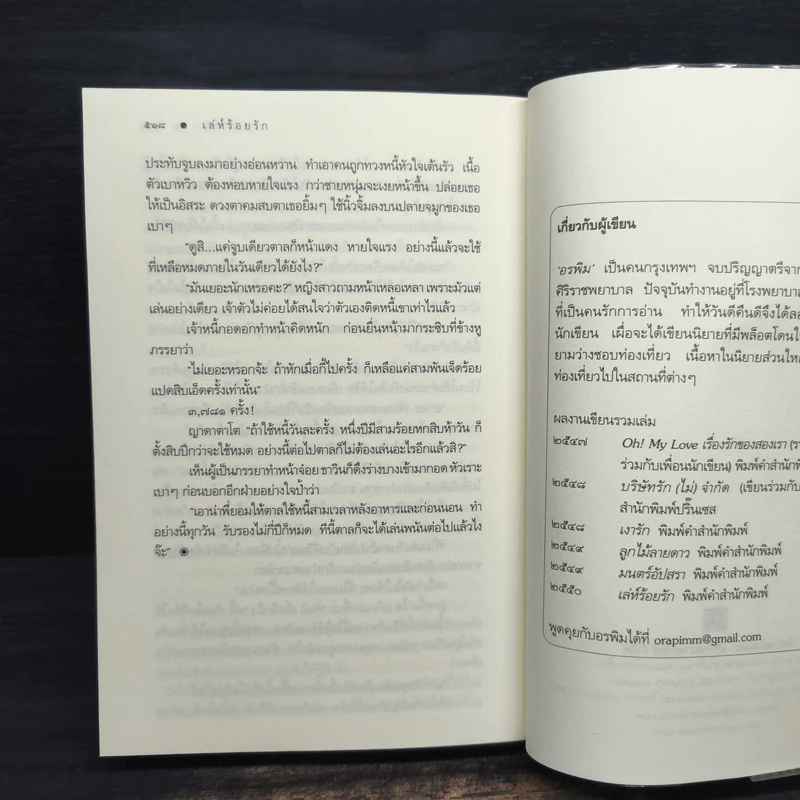 ๕๑๘ ● เล่ห์ร้อยรัก
ประทับจูบลงมาอย่างอ่อนหวาน ทำเอาคนถูกทวงหนี้หัวใจเต้นรัว เนื้อ
ตัวเบาหวิว ต้องหอบหายใจแรง กว่าชายหนุ่มจะเงยหน้าขึ้น ปล่อยเธอ
ให้เป็นอิสระ ดวงตาคมสบตาเธอยิ้มๆ ใช้นิ้วจิ้มลงบนปลายจมูกของเธอ
เบาๆ
“ดูสิ...แค่จูบเดียวตาลก็หน้าแดง หายใจแรง อย่างนี้แล้วจะใช้
ที่เหลือหมดภายในวันเดียวได้ยังไง?”
“มันเยอะนักเหรอคะ?” หญิงสาวถามหน้าเหลอเหลา เพราะมัวแต่
เล่นอย่างเดียว เจ้าตัวไม่ค่อยได้สนใจว่าตัวเองติดหนี้เขาเท่าไรแล้ว
เจ้าหนี้กอดอกทำหน้าคิดหนัก ก่อนยื่นหน้ามากระซิบที่ข้างหู
ภรรยาว่า
“ไม่เยอะหรอกจ้ะ ถ้าหักเมื่อกี้ไปครั้ง ก็เหลือแค่สามพันเจ็ดร้อย
แปดสิบเอ็ดครั้งเท่านั้น”
๓,๗๘๑ ครั้ง!
ญาดาตาโต “ถ้าใช้หนี้วันละครั้ง หนึ่งปีมีสามร้อยหกสิบห้าวัน ก็
ตั้งสิบปีกว่าจะใช้หมด อย่างนี้ต่อไปตาลก็ไม่ต้องเล่นอะไรอีกแล้วสิ?”
เห็นผู้เป็นภรรยาทำหน้าจ๋อย ธาวินก็ดึงร่างบางเข้ามากอด หัวเราะ
เบาๆ ก่อนบอกอีกฝ่ายอย่างใจป้ำว่า
“เอาน่าพี่ยอมให้ตาลใช้หนี้สามเวลาหลังอาหารและก่อนนอน ทำ
อย่างนี้ทุกวัน รับรองไม่กี่ปีก็หมด ทีนี้ตาลก็จะได้เล่นพนันต่อไปแล้วไง
จ๊ะ” ◉
เกี่ยวกับผู้เขียน
‘อรพิม’ เป็นคนกรุงเทพฯ จบปริญญาตรีจาก
ศิริราชพยาบาล ปัจจุบันทำงานอยู่ที่โรงพยาบาล
ที่เป็นคนรักการอ่าน ทำให้วันดีคืนดีจึงได้ลอ
นักเขียน เผื่อจะได้เขียนนิยายที่มีพล็อตโดนใ
ยามว่างชอบท่องเที่ยว เนื้อหาในนิยายส่วนให
ท่องเที่ยวไปในสถานที่ต่างๆ
ผลงานเขียนรวมเล่ม
๒๕๔๗ Oh! My Love เรื่องรักของสองเรา (ร
ร่วมกับเพื่อนนักเขียน) พิมพ์คำสำนักพิ
๒๕๔๘ บริษัทรัก (ไม่) จำกัด (เขียนร่วมกับ
สำนักพิมพ์ปริ๊นเซส
๒๕๔๘ เงารัก พิมพ์คำสำนักพิมพ์
๒๕๔๙ ลูกไม้ลายดาว พิมพ์คำสำนักพิมพ์
๒๕๔๙ มนตร์อัปสรา พิมพ์คำสำนักพิมพ์
๒๕๕๐ เล่ห์ร้อยรัก พิมพ์คำสำนักพิมพ์
พูดคุยกับอรพิมได้ที่ orapimm@gmail.com